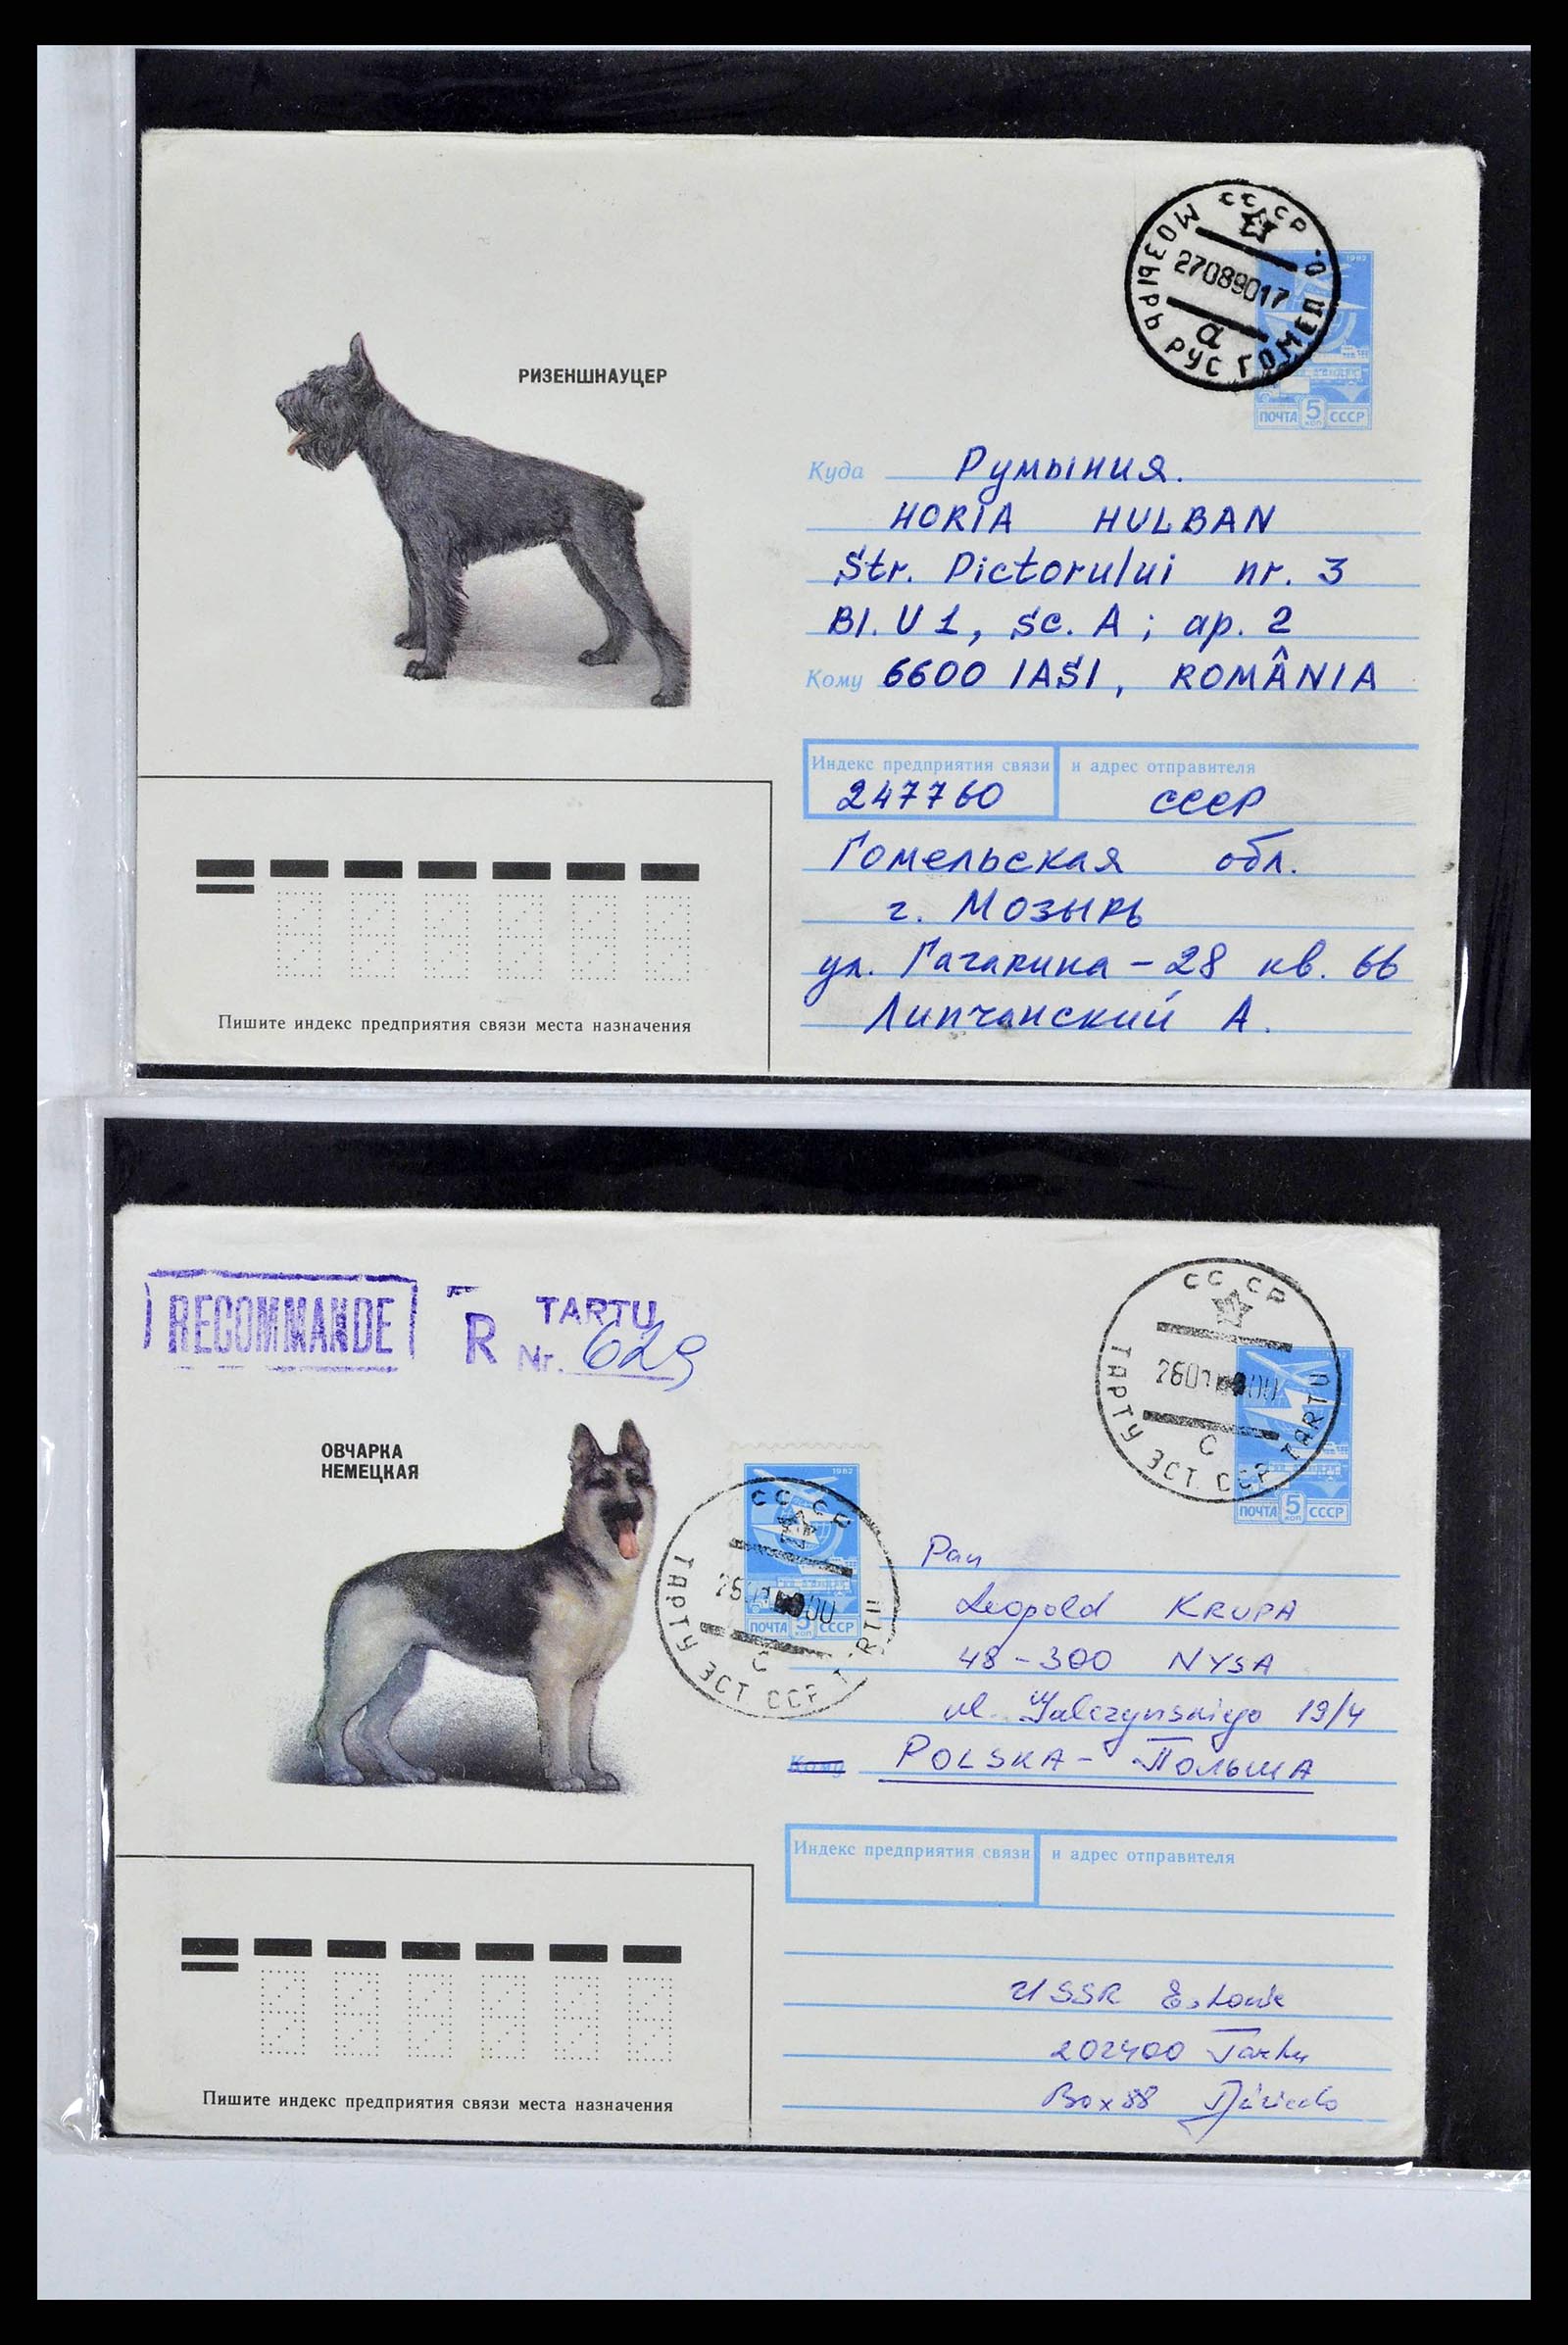 СССР
МОЗЫРЬ РУС ГОМЕЛ. О.
27089017
а
1982
ПОЧТА 5 КОП СССР
РИЗЕНШНАУЦЕР
Куда Румыния.
HORIA HULBAN
Str. Pictorului nr. 3
Bl. U 1, sc. A ; ap. 2
Кому 6600 IAŞI, ROMÂNIA
Индекс предприятия связи и адрес отправителя
247760 СССР
Гомельская обл.
г. Мозырь
ул. Гагарина - 28 кв. 66
Липчанский А.
Пишите индекс предприятия связи места назначения
RECOMMANDE
R TARTU
Nr. 629
СССР
ТАРТУ ЭСТ. ССР TARTU
С
ПОЧТА 5 КОП СССР
ОВЧАРКА
НЕМЕЦКАЯ
1982
СССР
ТАРТУ ЭСТ ССР TARTU
С
ПОЧТА 5 КОП СССР
Pan
Leopold KRUPA
48-300 NYSA
ul. 19/4
Кому POLSKA - ПОЛЬША
Индекс предприятия связи и адрес отправителя
USSR Estonie
202400 Tartu
Box 88
Пишите индекс предприятия связи места назначения